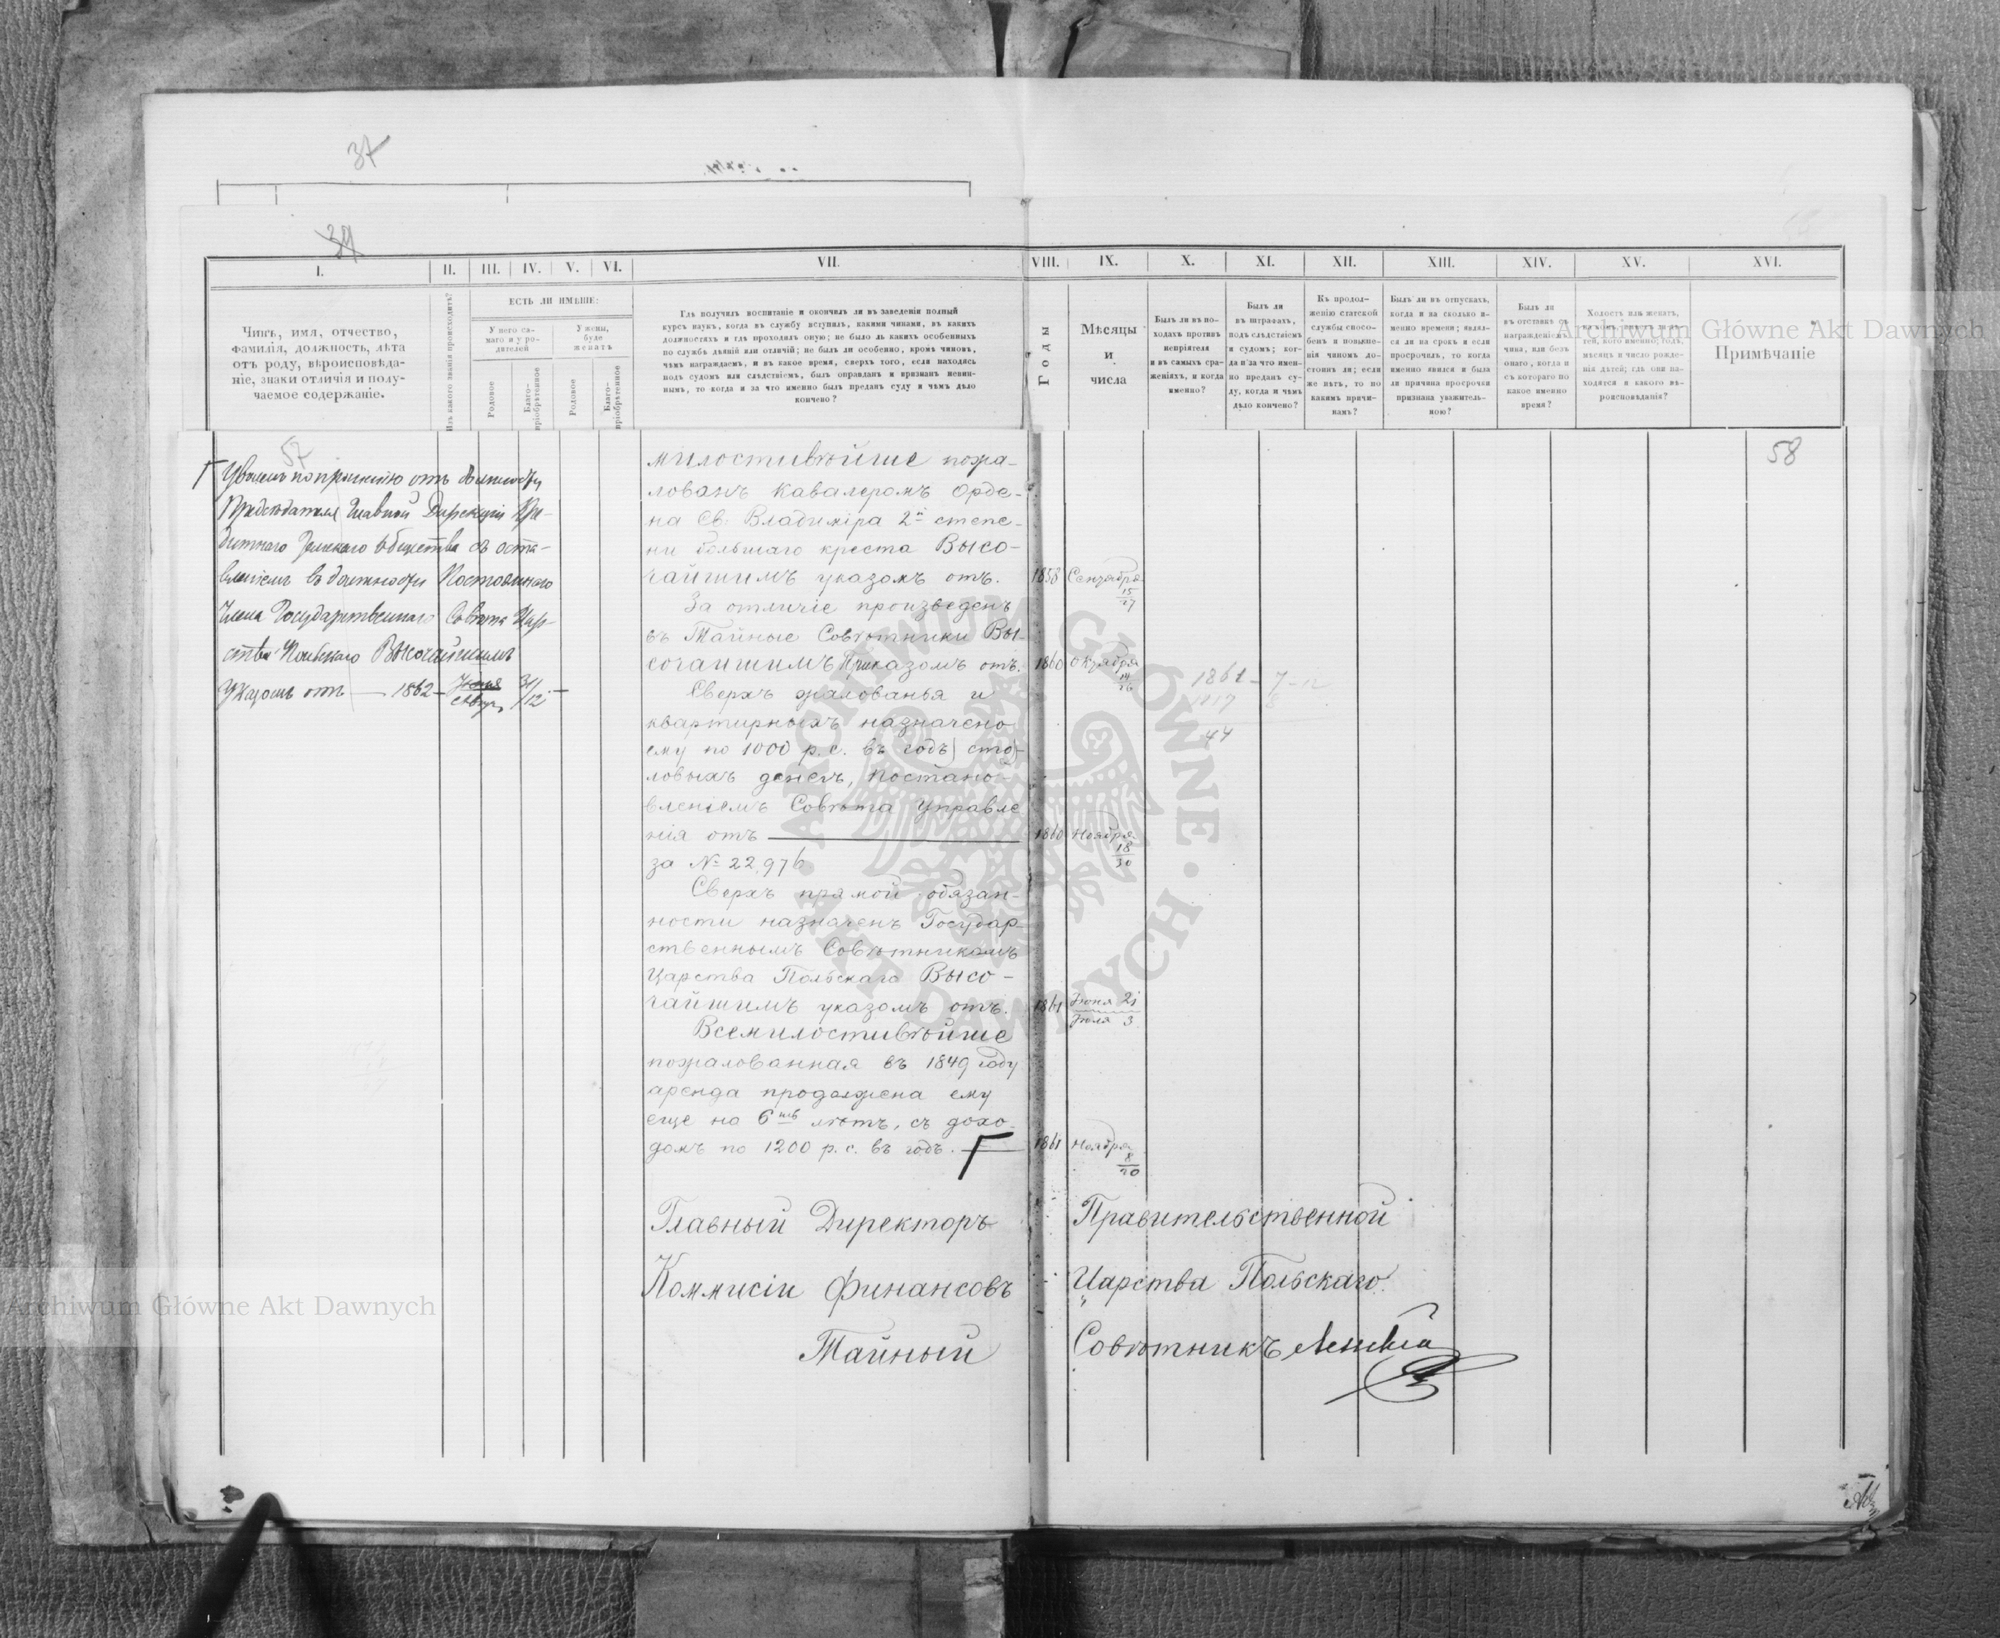 37
39
I. II. III. IV. V. VI. VII. VIII. IX. X. XI. XII. XIII. XIV. XV. XVI.
Чинъ, имя, отчество,
фамилія, должность, лѣта
отъ роду, вѣроисповѣда-
ніе, знаки отличія и полу-
чаемое содержаніе.
Изъ какого званія происходитъ?
ЕСТЬ ЛИ ИМѢНІЕ:
У него са-
маго и у ро-
дителей
У жены,
буде
женатъ
Родовое
Благо-
пріобрѣтенное
Родовое
Благо-
пріобрѣтенное
Гдѣ получилъ воспитаніе и окончилъ ли въ заведеніи полный
курсъ наукъ, когда въ службу вступилъ, какими чинами, въ какихъ
должностяхъ и гдѣ проходилъ оную; не было ль какихъ особенныхъ
по службѣ дѣяній или отличій; не былъ ли особенно, кромѣ чиновъ,
чѣмъ награждаемъ, и въ какое время, сверхъ того, если находясь
подъ судомъ или слѣдствіемъ, былъ оправданъ и признанъ невин-
нымъ, то когда и за что именно былъ преданъ суду и чѣмъ дѣло
кончено?
Годы
Мѣсяцы
и
числа
Былъ ли въ по-
ходахъ противъ
непріятеля
и въ самыхъ сра-
женіяхъ, и когда
именно?
Былъ ли
въ штрафахъ,
подъ слѣдствіемъ
и судомъ; ког-
да и за что имен-
но преданъ су-
ду, когда и чѣмъ
дѣло кончено?
Къ продол-
женію статской
службы спосо-
бенъ и повыше-
нія чиномъ до-
стоинъ ли; если
же нѣтъ, то по
какимъ причи-
намъ?
Былъ ли въ отпускахъ,
когда и на сколько и-
менно времени; явил-
ся ли на срокъ и если
просрочилъ, то когда
именно явился и была
ли причина просрочки
признана уважитель-
ною?
Былъ ли
въ отставкѣ съ
награжденіемъ
чина, или безъ
онаго, когда и
съ котораго по
какое именно
время?
Холостъ иль женатъ,
тей, кого именно; годъ,
мѣсяцъ и число рожде-
нія дѣтей; гдѣ они на-
ходятся и какого вѣ-
роисповѣданія?
Примѣчаніе
57
58
Уволенъ по прошенію отъ должности
Предсѣдателя Главной Дирекціи Кре-
дитнаго Земскаго Общества съ оста-
вленіемъ въ должности Постояннаго
Члена Государственнаго Совѣта Цар-
ства Польскаго Высочайшимъ
Указомъ отъ — 1862 — 31/12
милостивѣйше пожа-
лованъ Кавалеромъ Орде-
на Св. Владиміра 2й степе-
ни большаго креста Высо-
чайшимъ указомъ отъ. 1858 Сентября 15/27
За отличіе произведенъ
въ Тайные Совѣтники Вы-
сочайшимъ Приказомъ отъ. 1860 Октября 14/26
1861 — 7 — 12
1817 8
44
Сверхъ жалованья и
квартирныхъ назначено
ему по 1000 р. с. въ годъ) сто)-
ловыхъ денегъ, постано-
вленіемъ Совѣта Управле
нія отъ 1860 Ноября 18/30
за № 22,976
Сверхъ прямой обязан-
ности назначенъ Государ-
ственнымъ Совѣтникомъ
Царства Польскаго Высо-
чайшимъ указомъ отъ. 1861 Іюня 21 Іюля 3
Всемилостивѣйше
пожалованная въ 1849 году
аренда продолжена ему
еще на 6ть лѣтъ, съ дохо-
домъ по 1200 р. с. въ годъ. 1861 Ноября 8/20
Главный Директоръ Правительственной
Коммисіи Финансовъ Царства Польскаго.
Тайный Совѣтникъ
Archiwum Główne Akt Dawnych
Archiwum Główne Akt Dawnych
ARCHIWUM GŁÓWNE AKT DAWNYCH